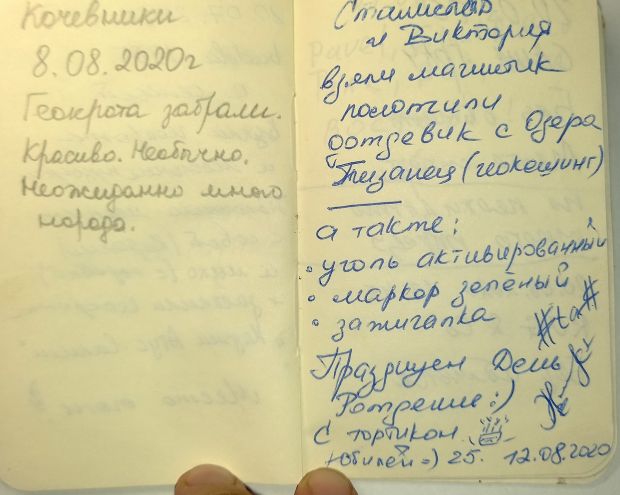 Кочевники
8.08.2020г
Геокрота забрали.
Красиво. Необычно.
Неожиданно много
народа.
Станислав
и Виктория
взяли магнитик
положили
с Озера
Тизанец (геокешинг)
а также:
• уголь активированный
• маркор зелёный
• зажигалка
Празднуем День
Рождение:)
С тортиком
Юбилей=) 25. 12.08.2020